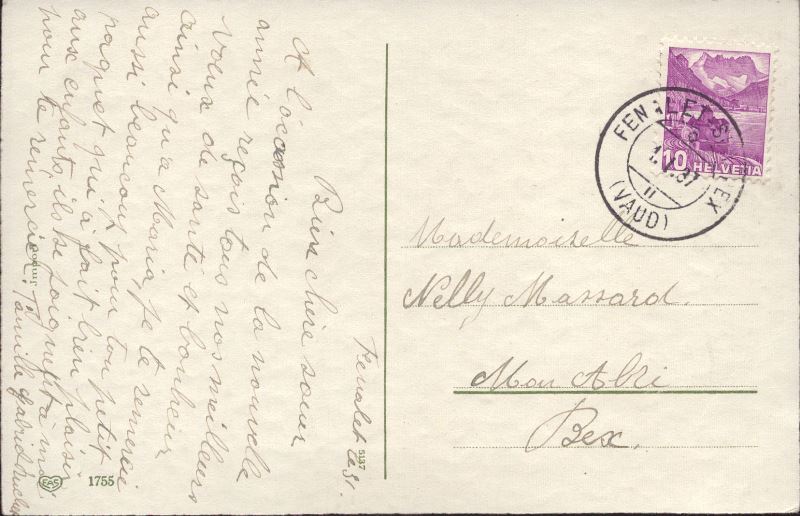 Fenalet le 31.
Bien chère sœur
A l'occasion de la nouvelle
année reçois tous nos meilleurs
Vœux de santé et bonheur
ainsi qu'a Maria, je te remercie
aussi beaucoup pour ton petit
paquet qui a fait bien plaisir
aux enfants ils se joignent à moi
pour te remercier. Famille
Mademoiselle
Nelly Massard.
Mon Abri
Bex.
FENALET-S/BEX
1.V.37
11
(VAUD)
10 HELVETIA
5137
EAS 1755
Import